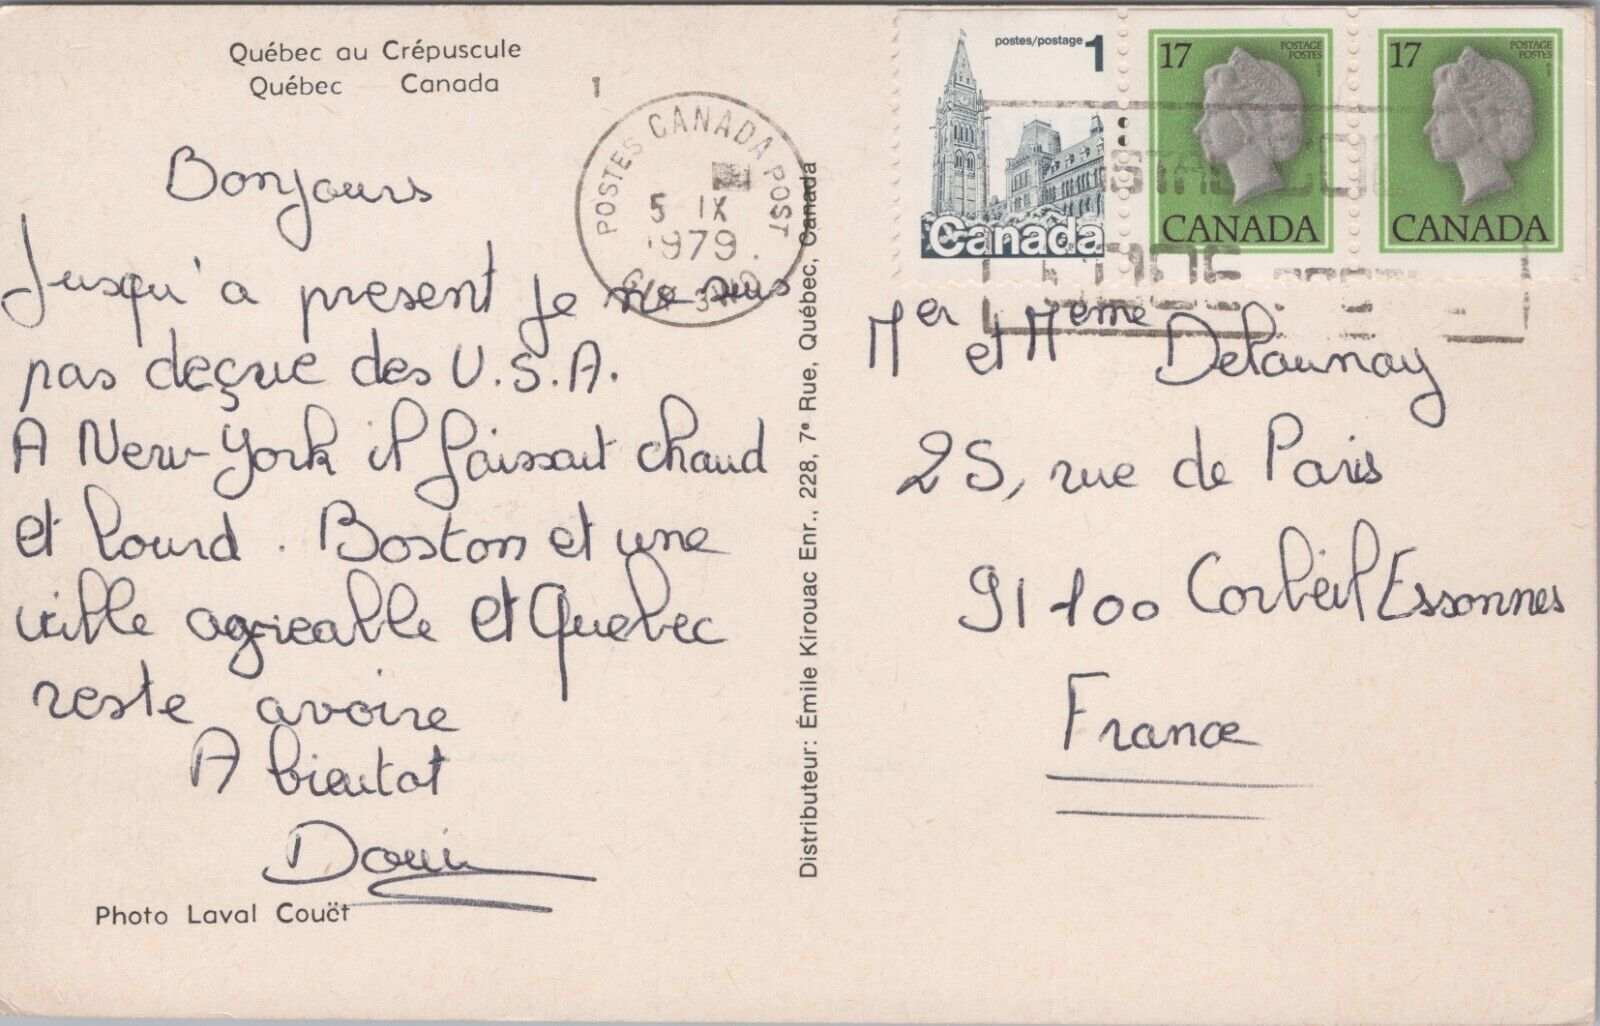 Québec au Crépuscule
Québec Canada
1
POSTES CANADA POST
5 IX
1979
postes/postage 1
Canada
17
POSTAGE
POSTES
CANADA
17
POSTAGE
POSTES
CANADA
Bonjours
Jusqu'a present je ne suis
pas deçue des U.S.A.
A New-York il faissait chaud
et lourd. Boston et une
ville agreable et Quebec
reste avoire
A bientot
Photo Laval Couët
Distributeur: Émile Kirouac Enr., 228, 7e Rue, Québec, Canada
Mer et Meme Delaunay
25, rue de Paris
91100 Corbeil Essonnes
France